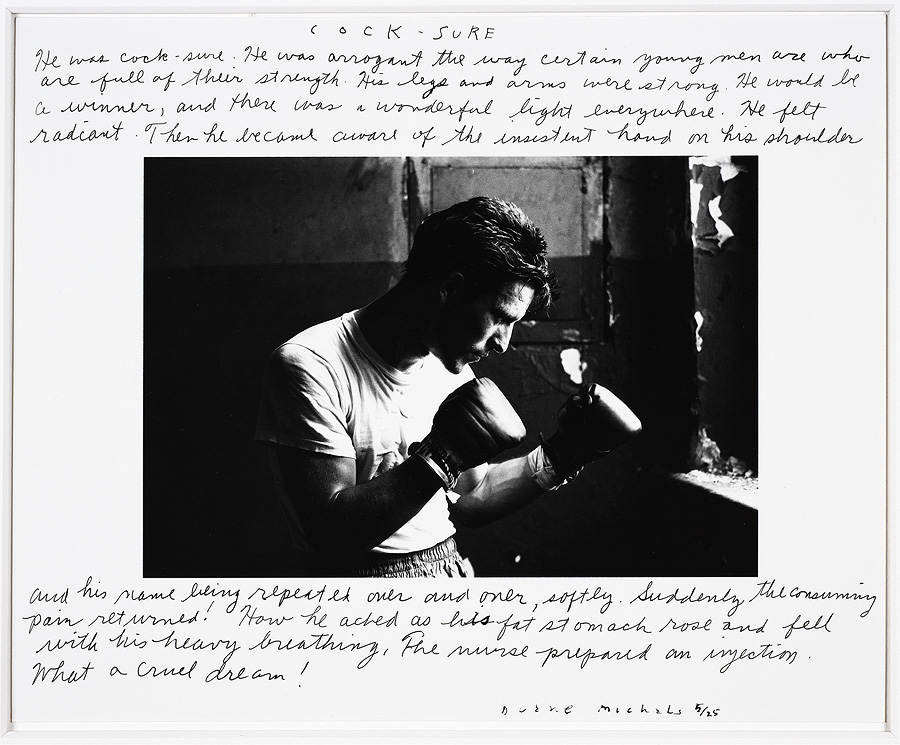 COCK-SURE
He was cock-sure. He was arrogant the way certain young men are who
are full of their strength. His legs and arms were strong. He would be
a winner, and there was a wonderful light everywhere. He felt
radiant. Then he became aware of the insistent hand on his shoulder
and his name being repeated over and over, softly. Suddenly the consuming
pain returned! How he ached as his fat stomach rose and fell
with his heavy breathing. The nurse prepared an injection.
What a cruel dream!
Duane Michals 5/25